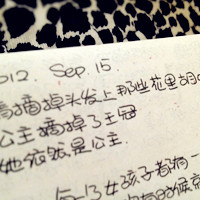 2012. Sep. 15
摘掉头发上那些花里胡
公主摘掉了王冠
她依然是公主.
每一个女孩子都有一